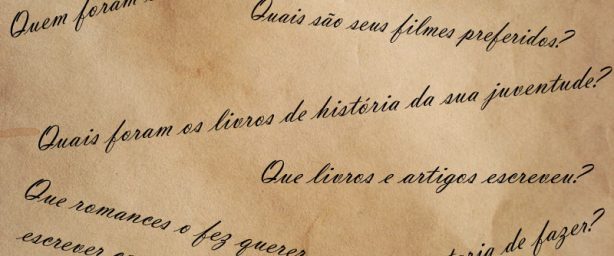 Quem foram
Quais são seus filmes preferidos?
Quais foram os livros de história da sua juventude?
Que livros e artigos escreveu?
Que romances o fez querer
de fazer?
escrever